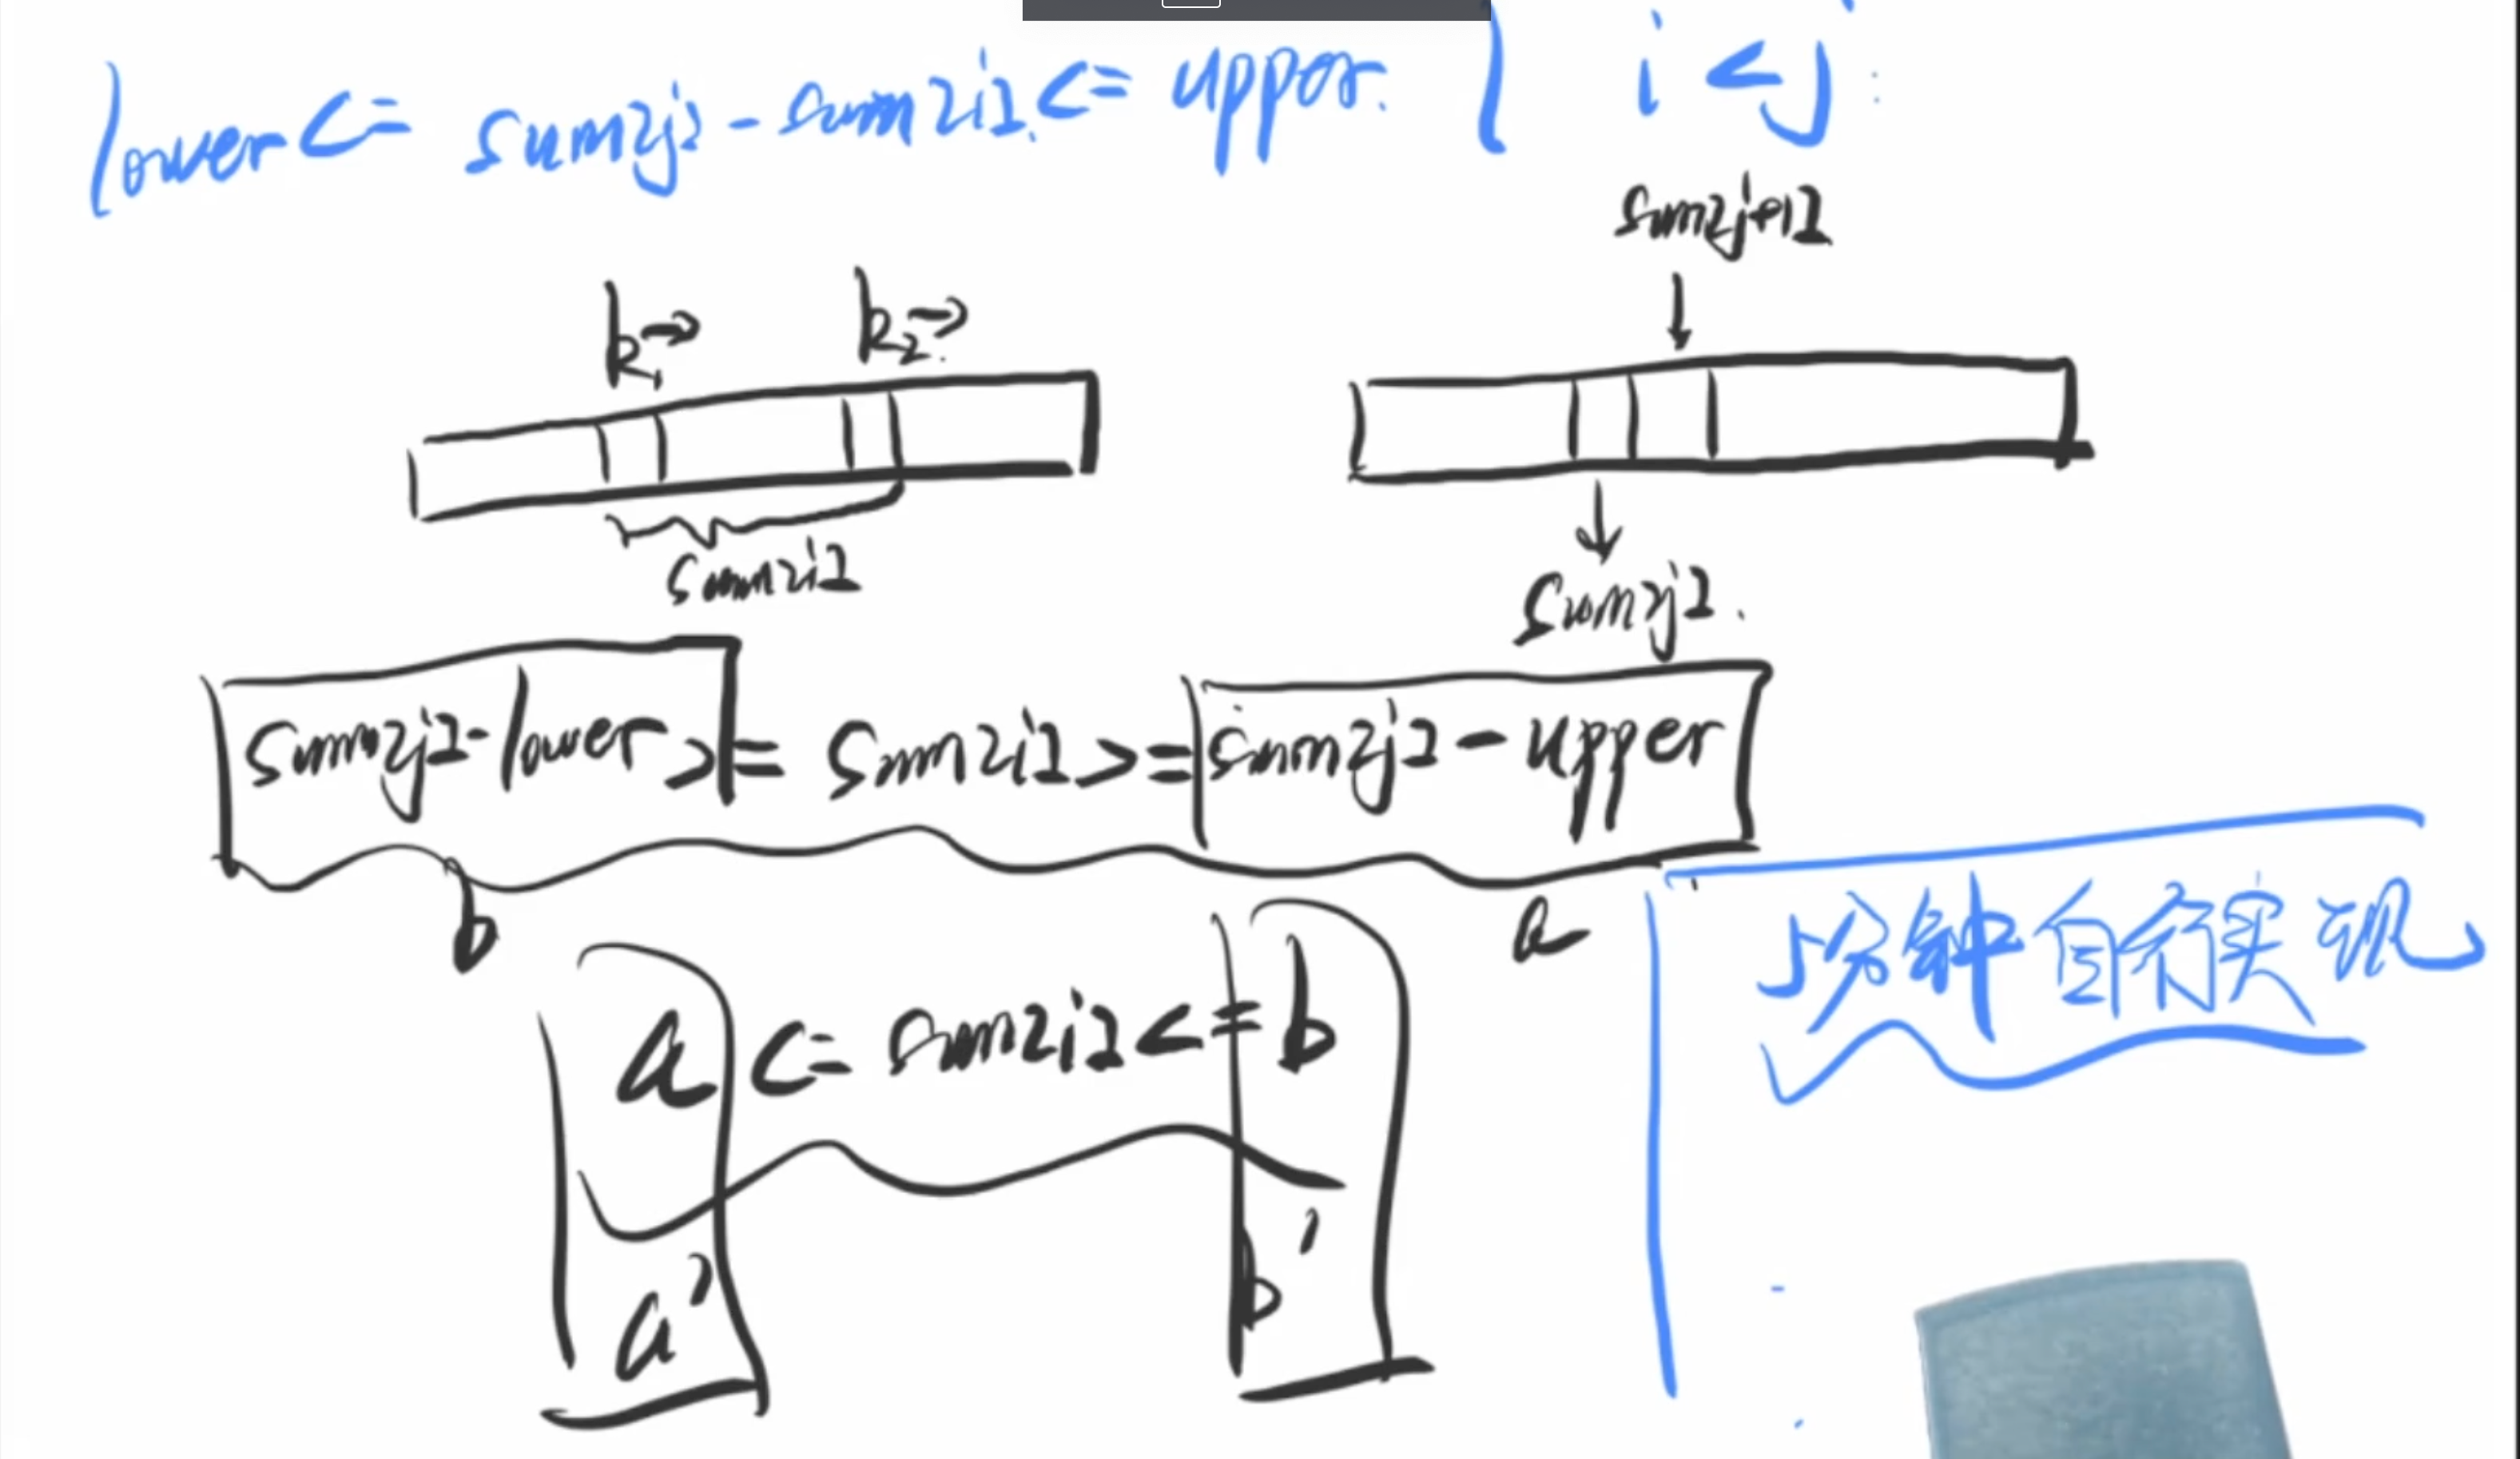 lower <= sum[j] - sum[i] <= uppor. i < j
sum[j+1]
k1→ k2→
sum[i]
sum[j].
sum[j]-lower >= sum[i] >= sum[j]-upper
b
a
5分钟自行实现
a <= sum[i] <= b
a' b'